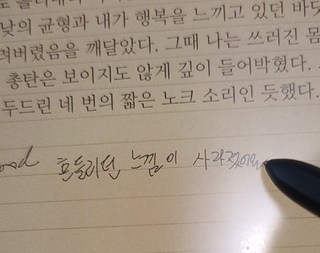 낮의 균형과 내가 행복을 느끼고 있던 바닷
려버렸음을 깨달았다. 그때 나는 쓰러진 몸
총탄은 보이지도 않게 깊이 들어박혔다.
두드린 네 번의 짧은 노크 소리인 듯했다.
흔들리던 느낌이 사라졌어요